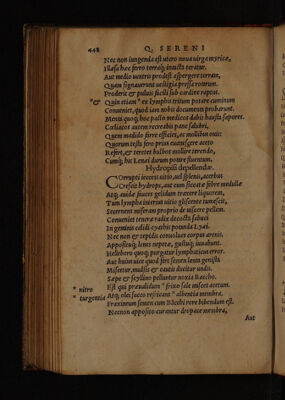 448 Q. SERENI
Nec non iungenda est utero noua uirga myricæ,
Illæsa hæc ferro terráq; inuicta teratur.
Aut medio uentris prodest aspergere terram,
Quam signauerunt uestigia pressa rotarum.
Proderit & puluis facili sub cardine raptus.
*& Quin etiam * ex lymphis tritum potare cuminum
Conueniet, quod iam nobis documenta probarunt.
Menti quoq; hæc pasto medicos dabit haustu sapores.
Coriaceo autem recreabis pane salubri,
Quem madido ferro efficies, ac mollibis ouis:
Quorum testa fero prius euanescet aceto
Refert, & teretes bulbos mollire terendo,
Cumq; his Lenæi durum potare fluentum.
Hydropisi depellendæ.
Corrupti iecoris uitio, uel splenis, aceruus
Crescit hydrops, aut cum siccatæ febre medullæ
Atq; auidæ fauces gelidum traxere liquorem,
Tum lympha intercus uitio gliscente tumescit,
Secernens miseram proprio de uiscere pellem.
Conueniet tenerâ radix decocta sabuci
In geminis calidi cyathis potanda Lyæi.
Nec non & tepidis conuoluas corpus arenis.
Appositaq; lenes nepetæ, gustuq; iuuabunt.
Helleboro quoq; purgatur lymphaticus error.
Aut huius uice quod fert semen lentis genistæ
Miscetur, mulsis & cautis ducitur undis.
Sæpe & scyllino pelluntur noxia Baccho.
*nitro Est qui præualidum * fixo sale miscet acetum.
*turgentia Atq; olei succo resiccant * albentia membra.
Fraxineum semen cum Bacchi rore bibendum est.
Necnon apposito curantur dropace membra,
Aut